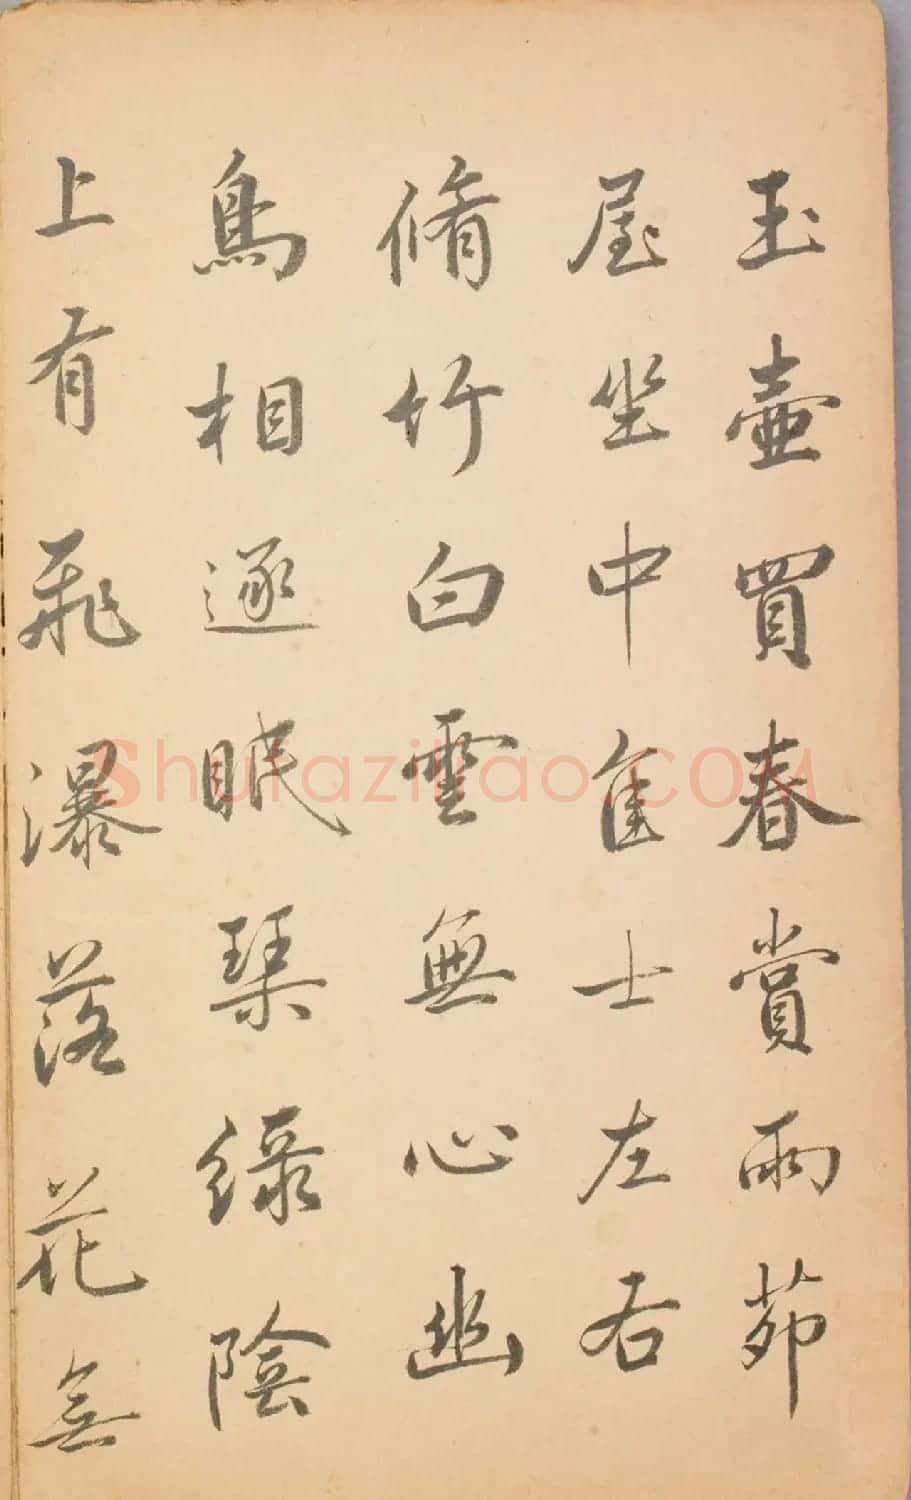 玉壺買春賞雨茆
屋坐中佳士左右
脩竹白雲無心幽
鳥相逐眠琴綠陰
上有飛瀑落花無
Shufaziliao.COM